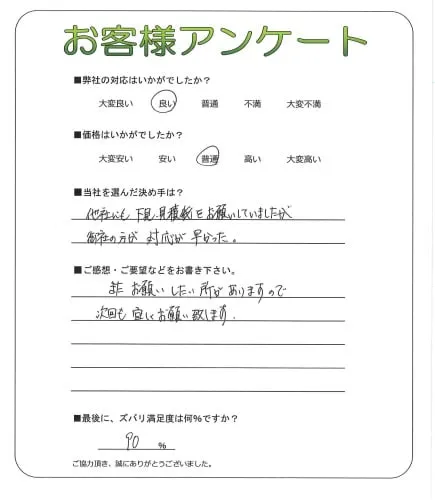 お客様アンケート
■弊社の対応はいかがでしたか？
大変良い 良い 普通 不満 大変不満
■価格はいかがでしたか？
大変安い 安い 普通 高い 大変高い
■当社を選んだ決め手は？
他社にも 下見、見積もりをお願いしていましたが
御社の方が 対応が早かった。
■ご感想・ご要望などをお書き下さい。
また お願いしたい所がありますので
次回も宜しくお願い致します.
■最後に、ズバリ満足度は何%ですか？
90 %
ご協力頂き、誠にありがとうございました。